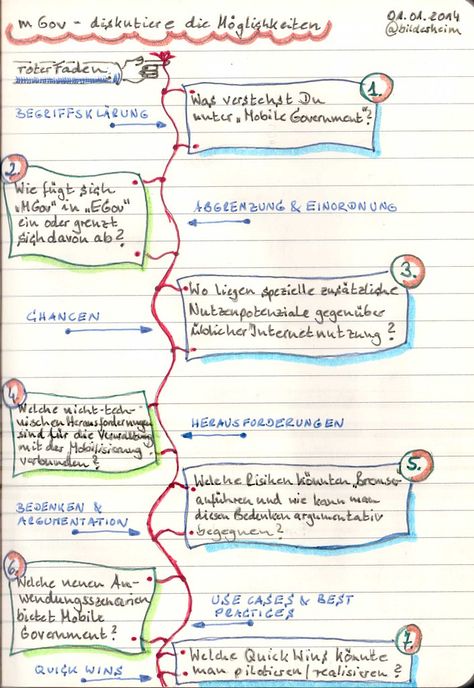 mGov - diskutiere die Möglichkeiten
01.01.2014
@bildesheim
roter Faden
1.
Was verstehst Du
unter „Mobile Government"?
BEGRIFFSKLÄRUNG
2.
Wie fügt sich
„MGov" in „EGov"
ein oder grenzt
sich davon ab?
ABGRENZUNG & EINORDNUNG
3.
Wo liegen spezielle zusätzliche
Nutzenpotenziale gegenüber
üblicher Internetnutzung?
CHANCEN
4.
Welche nicht-tech-
nischen Herausforderungen
sind für die Verwaltung
mit der Mobilisierung
verbunden?
HERAUSFORDERUNGEN
5.
Welche Risiken könnten
anführen und wie kann man
diesen Bedenken argumentativ
begegnen?
BEDENKEN &
ARGUMENTATION
6.
Welche neuen An-
wendungsszenarien
bietet Mobile
Government?
USE CASES & BEST
PRACTICES
7.
Welche Quick Wins könnte
man pilotieren/realisieren?
QUICK WINS